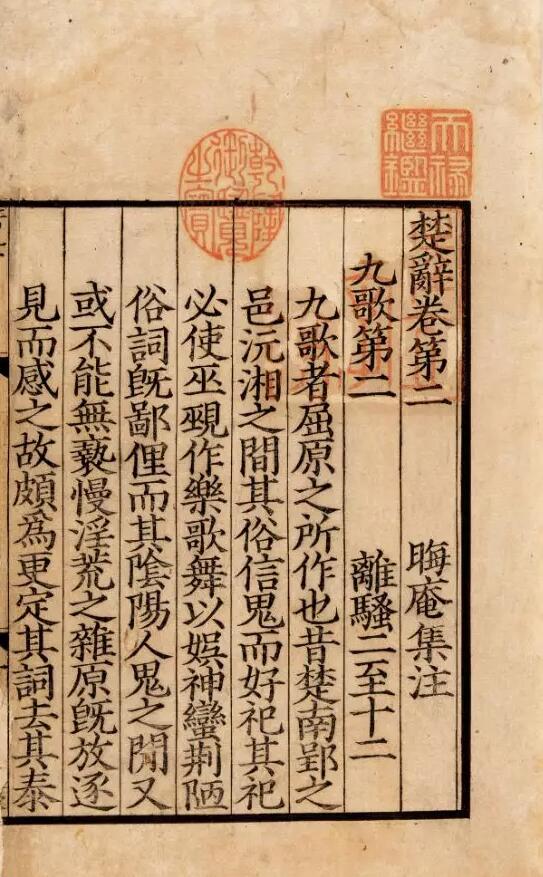 楚辭卷第二　晦庵集注
九歌第二　離騷二至十二
九歌者屈原之所作也昔楚南郢之
邑沅湘之間其俗信鬼而好祀其祀
必使巫覡作樂歌舞以娛神蠻荆陋
俗詞旣鄙俚而其陰陽人鬼之間又
或不能無褻慢淫荒之雜原旣放逐
見而感之故頗為更定其詞去其泰
天禄繼鑑
乾隆御覽之寶